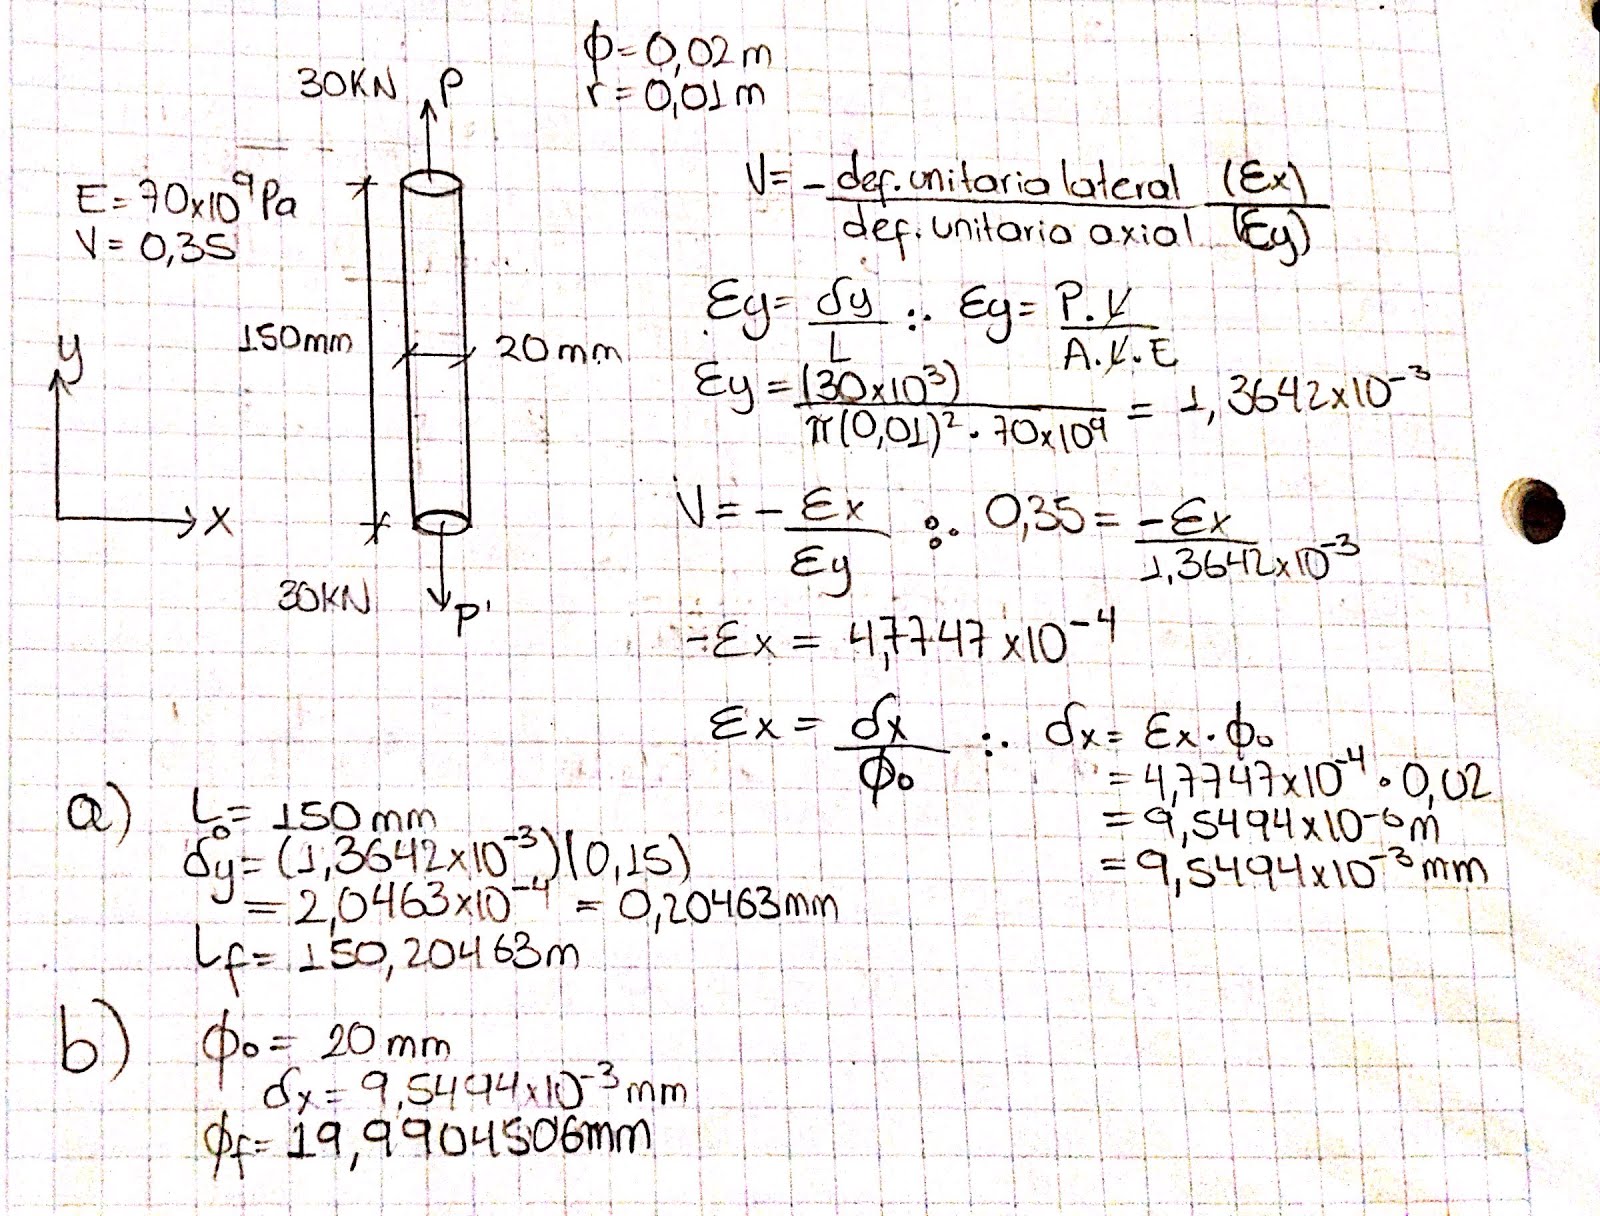 ϕ=0,02m
r=0,01m
30KN P
E=70x10⁹Pa
V=0,35
150mm
20mm
y
x
30KN
P'
V= - def.unitaria lateral (Ex) / def.unitaria axial (Ey)
Ey= δy/L ∴ Ey= P.L/A.L.E
Ey = (30x10³) / π(0,01)² · 70x10⁹ = 1,3642x10⁻³
V= - Ex/Ey ∴ 0,35 = -Ex / 1,3642x10⁻³
-Ex = 4,7747x10⁻⁴
Ex = δx/ϕ₀ ∴ δx= Ex·ϕ₀
= 4,7747x10⁻⁴ · 0,02
= 9,5494x10⁻⁶m
= 9,5494x10⁻³mm
a) L₀= 150mm
δy= (1,3642x10⁻³)(0,15)
= 2,0463x10⁻⁴ = 0,20463mm
Lf= 150,20463m
b) ϕ₀= 20mm
δx= 9,5494x10⁻³mm
ϕf= 19,9904506mm